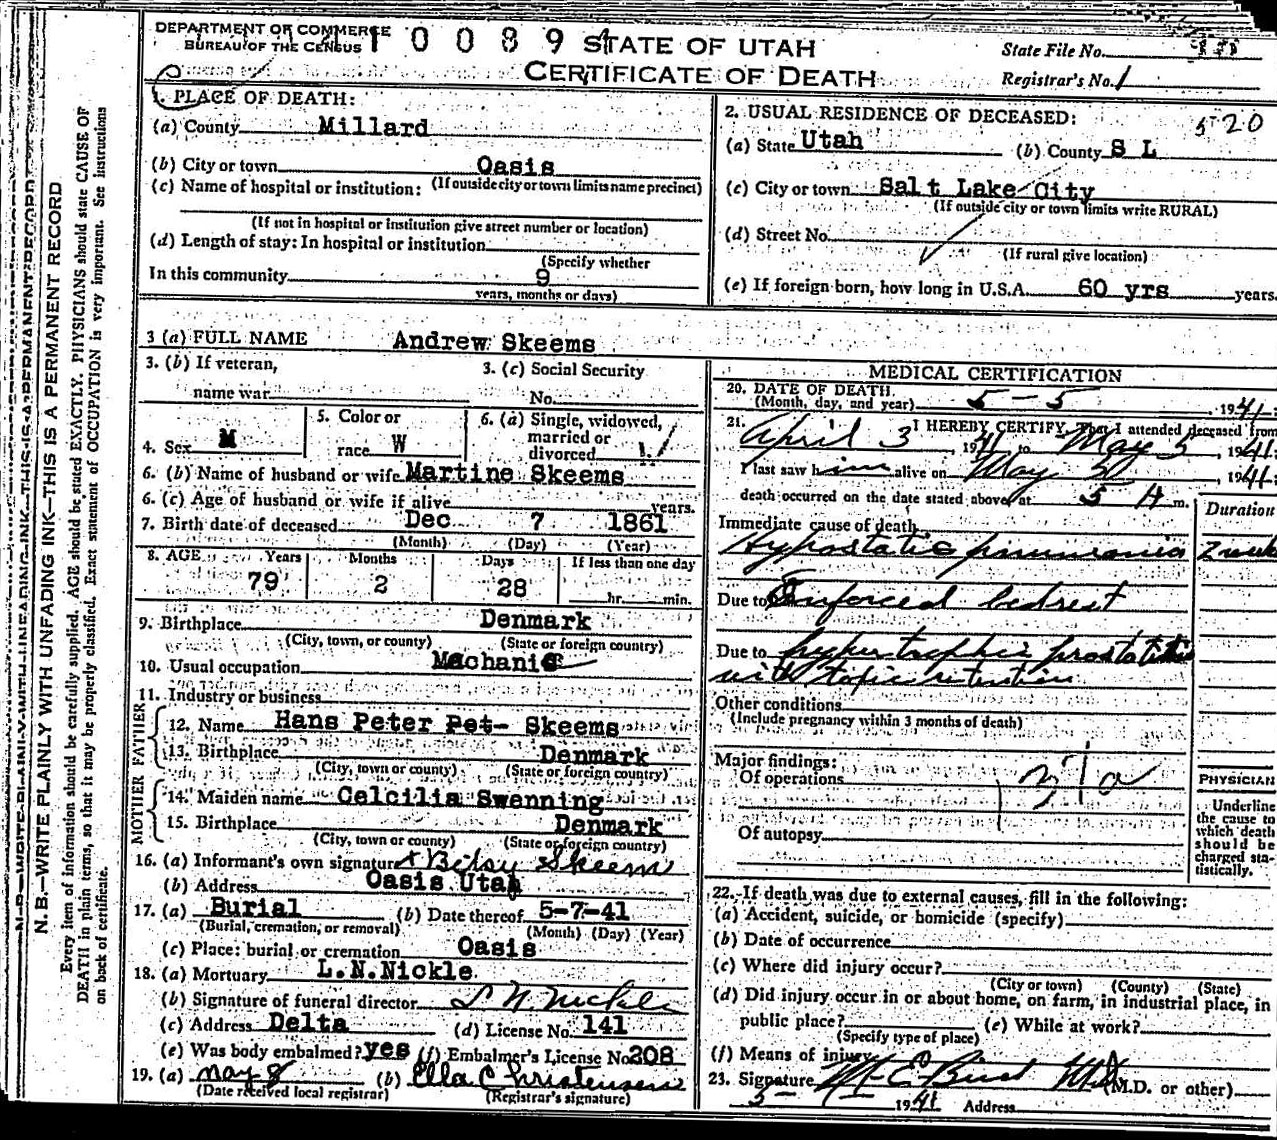 DEPARTMENT OF COMMERCE
BUREAU OF THE CENSUS
1 0 0 8 9
STATE OF UTAH
CERTIFICATE OF DEATH
State File No.
Registrar's No. 1
1. PLACE OF DEATH:
(a) County Millard
(b) City or town Oasis
(If outside city or town limits name precinct)
(c) Name of hospital or institution:
(If not in hospital or institution give street number or location)
(d) Length of stay: In hospital or institution
(Specify whether
In this community 9
years, months or days)
2. USUAL RESIDENCE OF DECEASED:
520
(a) State Utah (b) County S L
(c) City or town Salt Lake City
(If outside city or town limits write RURAL)
(d) Street No.
(If rural give location)
(e) If foreign born, how long in U.S.A. 60 yrs years.
3 (a) FULL NAME Andrew Skeems
3. (b) If veteran, name war
3. (c) Social Security No.
4. Sex M
5. Color or race W
6. (a) Single, widowed, married or divorced
6. (b) Name of husband or wife Martine Skeems
6. (c) Age of husband or wife if alive years.
7. Birth date of deceased Dec 7 1861
(Month) (Day) (Year)
8. AGE Years Months Days If less than one day
79 2 28 hr. min.
9. Birthplace Denmark
(City, town, or county) (State or foreign country)
10. Usual occupation Machanic
11. Industry or business
FATHER
12. Name Hans Peter Pet- Skeems
13. Birthplace Denmark
(City, town or county) (State or foreign country)
MOTHER
14. Maiden name Celcilia Swenning
15. Birthplace Denmark
(City, town or county) (State or foreign country)
16. (a) Informant's own signature Betsy Skeem
(b) Address Oasis Utah
17. (a) Burial (b) Date thereof 5-7-41
(Burial, cremation, or removal) (Month) (Day) (Year)
(c) Place: burial or cremation Oasis
18. (a) Mortuary L.N.Nickle
(b) Signature of funeral director L N Nickle
(c) Address Delta (d) License No. 141
(e) Was body embalmed? yes (f) Embalmer's License No 208
19. (a) May 8 (b) Ella C Christensen
(Date received local registrar) (Registrar's signature)
MEDICAL CERTIFICATION
20. DATE OF DEATH
(Month, day, and year) 5-5, 1941
21. I HEREBY CERTIFY, That I attended deceased from
April 3, 1941 to May 5, 1941
I last saw him alive on May, 1941
death occurred on the date stated above at 5 A m.
Duration
Immediate cause of death
Hypostatic pneumonia 2 week
Due to Enforced bedrest
Due to hypertrophic prostatitis
with toxic retention
Other conditions
(Include pregnancy within 3 months of death)
Major findings:
Of operations
Of autopsy
PHYSICIAN
Underline
the cause to
which death
should be
charged sta-
tistically.
22. If death was due to external causes, fill in the following:
(a) Accident, suicide, or homicide (specify)
(b) Date of occurrence
(c) Where did injury occur?
(City or town) (County) (State)
(d) Did injury occur in or about home, on farm, in industrial place, in
public place? (e) While at work?
(Specify type of place)
(f) Means of injury
23. Signature M E Bird MD (M.D. or other)
1941 Address
N. B.—WRITE PLAINLY WITH UNFADING INK—THIS IS A PERMANENT RECORD
Every item of information should be carefully supplied. AGE should be stated EXACTLY. PHYSICIANS should state CAUSE OF
DEATH in plain terms, so that it may be properly classified. Exact statement of OCCUPATION is very important. See instructions
on back of certificate.